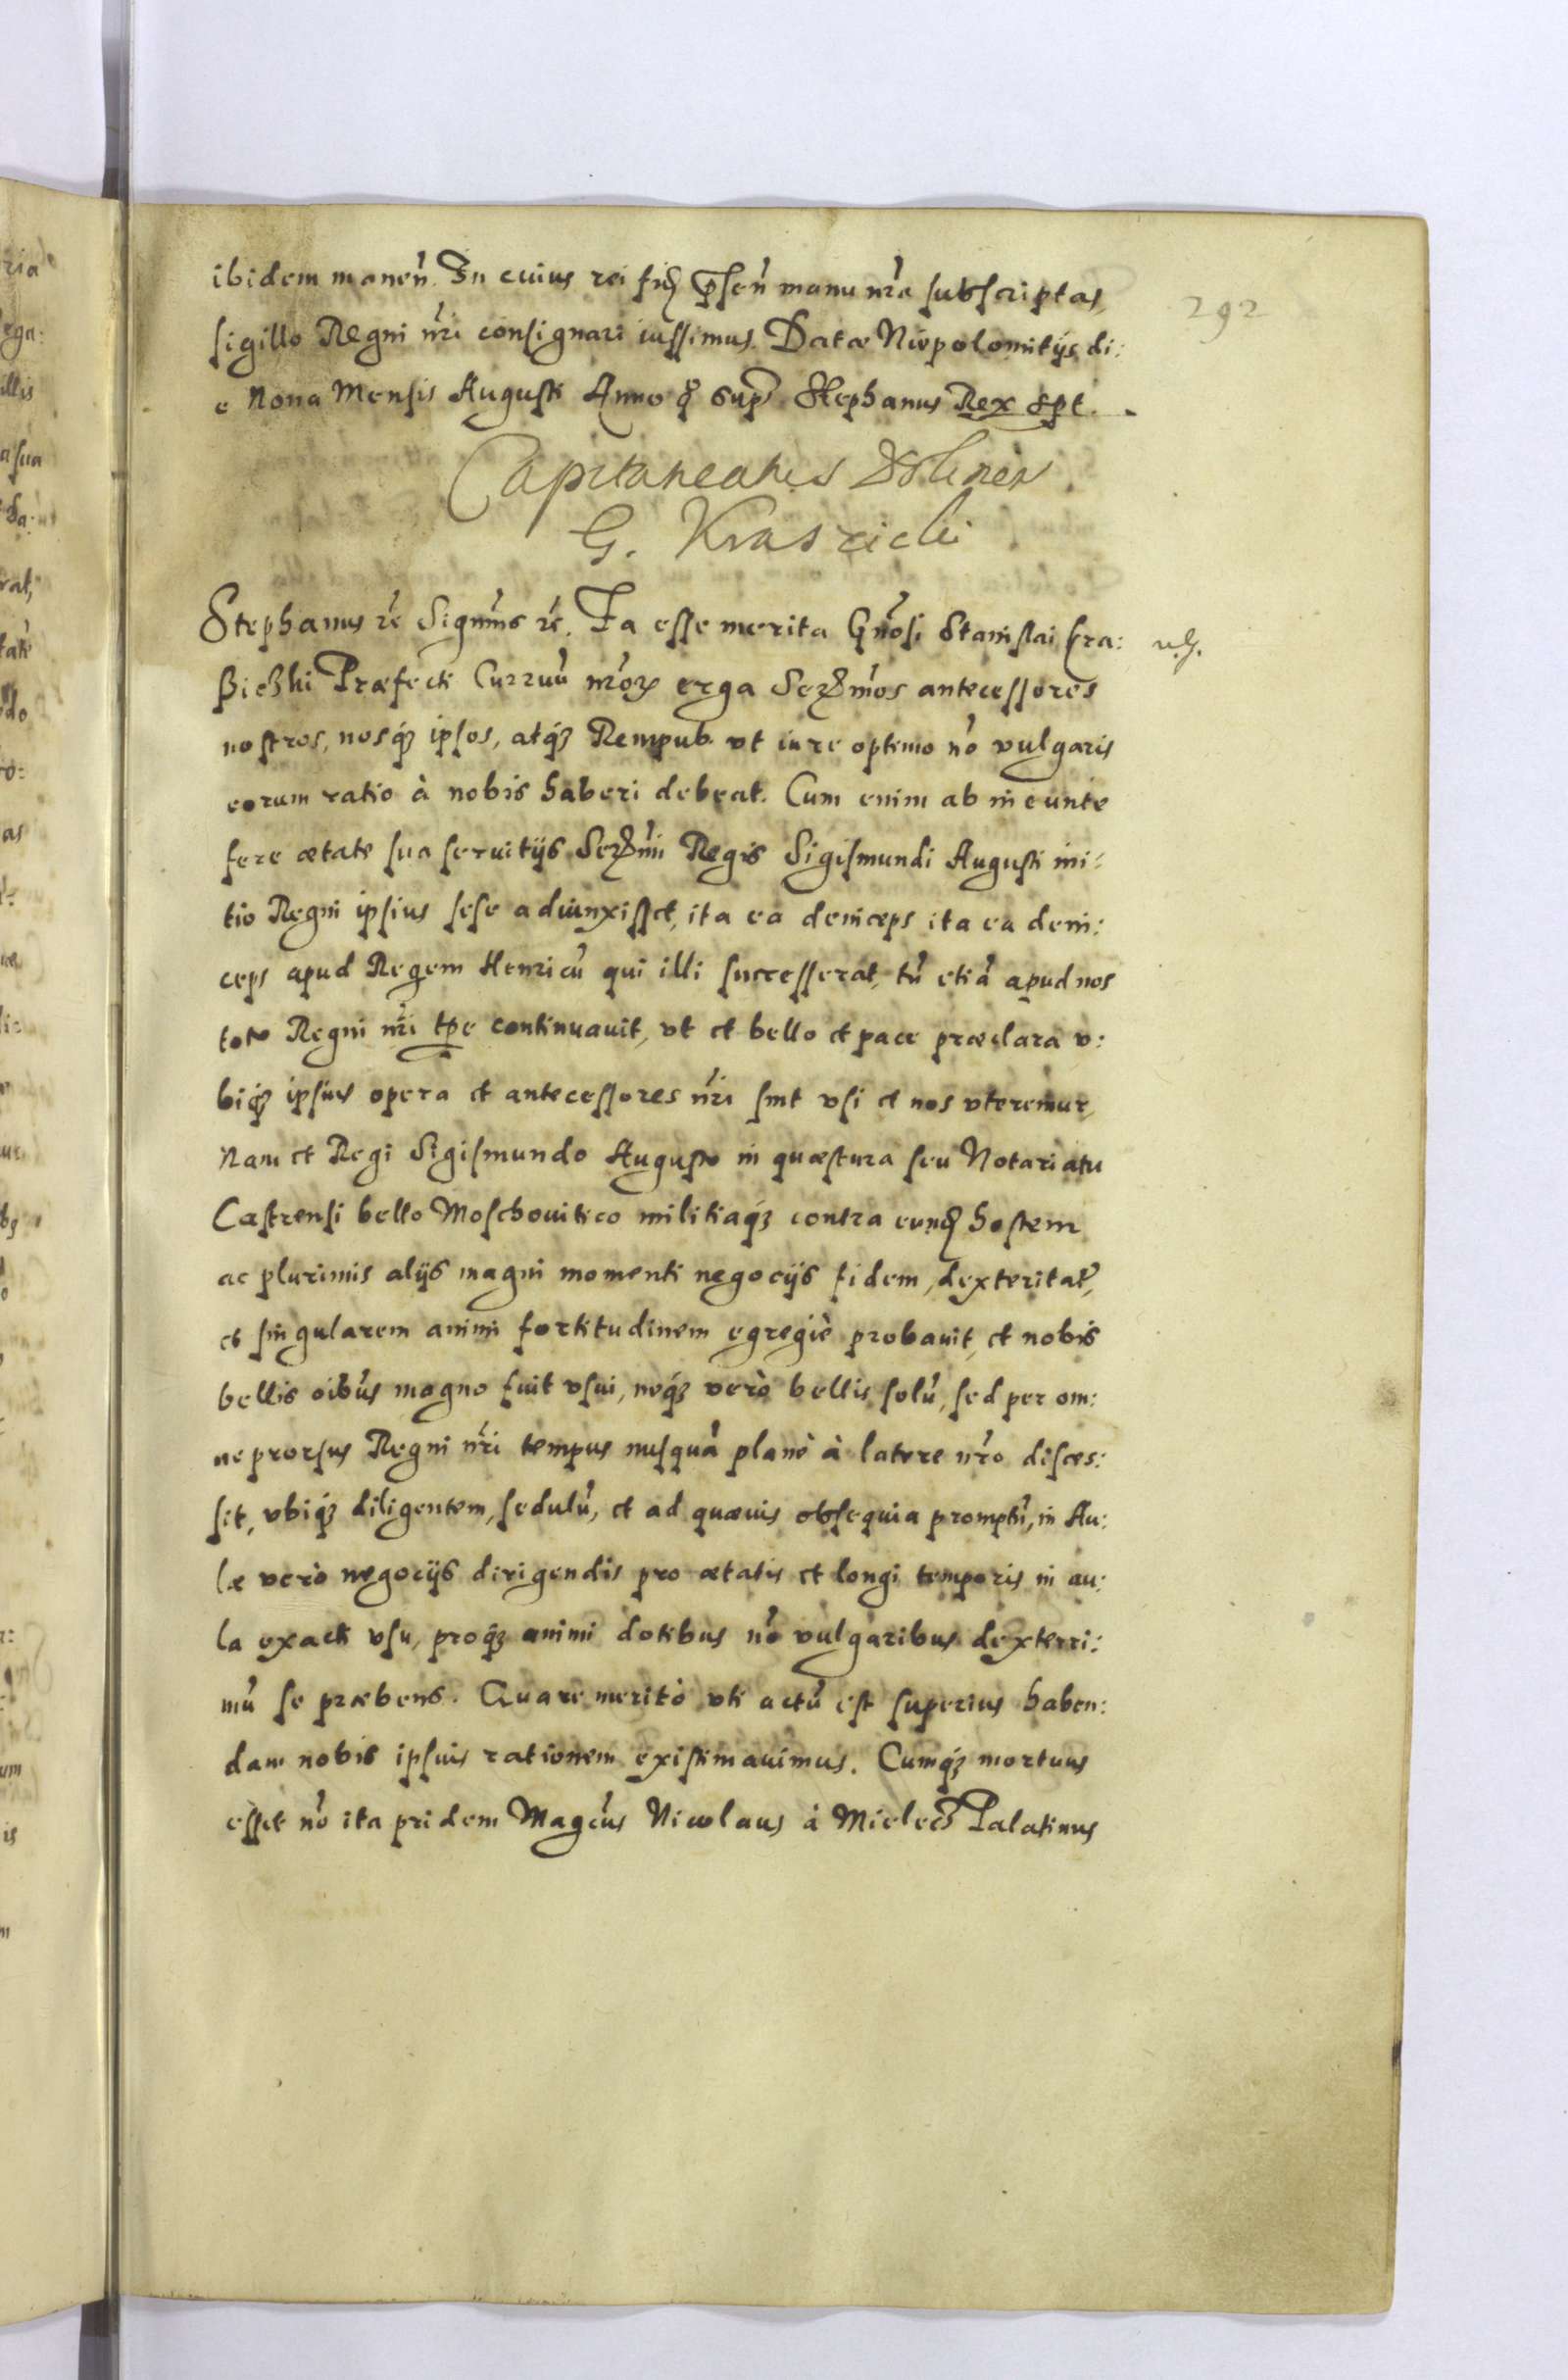 292
ibidem maneñ. In cuius rei fid p̃señ manu nr̃a subscriptas,
sigillo Regni nr̃i consignari iussimus. Datæ Niepolomitijs di:
e Nona Mensis Augusti Anno q̃ sup̃ Stephanus Rex sp̃t.
Capitaneatus Dolinen
G. Kraszicki
Stephanus rẽ Signm̃s rẽ. Ea esse merita Gñosi Stanislai Cra:
ßiczki Præfecti Curruũ nr̃or erga Serm̃os antecessores
nostros, nosq́ȝ ipsos, atq́ȝ Rempub. vt iure optimo nõ vulgaris
eorum ratio à nobis haberi debeat. Cum enim ab ineunte
fere ætate sua seruitijs Serm̃i Regis Sigismundi Augusti ini:
tio Regni ipsius sese adiunxisset, ita ea deinceps ita ea dein:
ceps apud Regem Henricũ qui illi successerat, tũ etiã apud nos
toto Regni nr̃i tp̃e continuauit, vt et bello et pace præclara v:
biq́ȝ ipsius opera et antecessores nr̃i sint vsi et nos vteremur,
Nam et Regi Sigismundo Augusto in quæstura seu Notariatu
Castrensi bello Moschouitico militiaq́ȝ contra eund hostem
ac plurimis alijs magni momenti negocijs fidem, dexteritat̃,
et singularem animi fortitudinem egregiè probauit, et nobis
bellis oib̃us magno fuit vsui, neq́ȝ verò bellis solũ, sed per om:
ne prorsus Regni nr̃i tempus nusquã planè à latere nr̃o disces:
sit, vbiq́ȝ diligentem, sedulũ, et ad quæuis obsequia promptũ, in Au:
læ verò negocijs dirigendis pro ætatis et longi temporis in au:
la exacti vsu, proq́ȝ animi dotibus nõ vulgaribus dexterri:
mũ se præbens. Quare meritò vti actũ est superius haben:
dam nobis ipsius rationem existimauimus. Cumq́ȝ mortuus
esset nõ ita pridem Magc̃us Nicolaus à Mielec̃ Palatinus